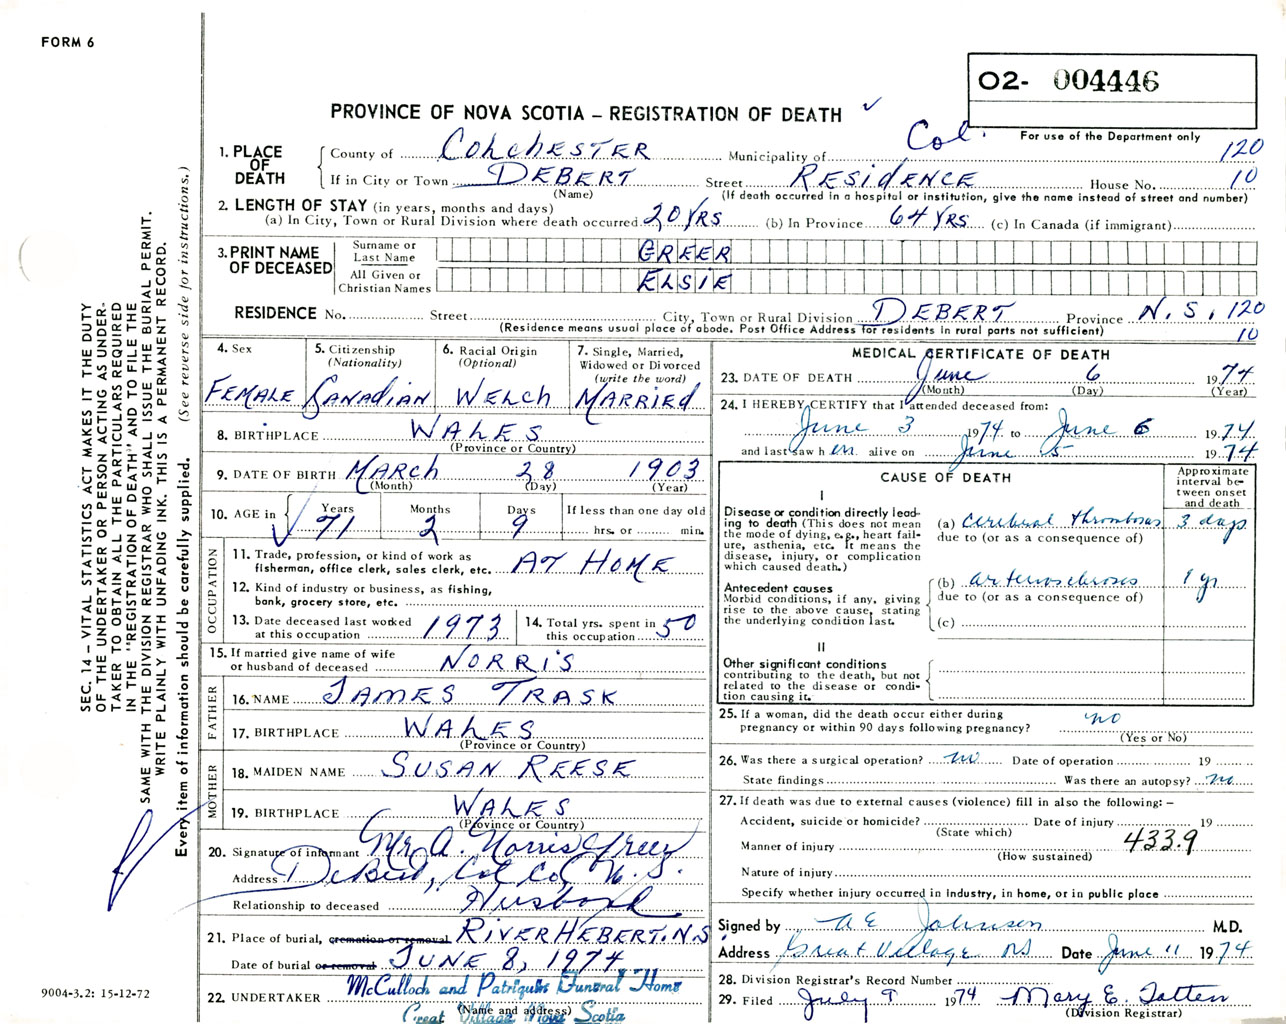 FORM 6
O2- 004446
PROVINCE OF NOVA SCOTIA – REGISTRATION OF DEATH ✓
For use of the Department only
1. PLACE OF DEATH
County of COLCHESTER Municipality of Col. 120
If in City or Town DEBERT Street RESIDENCE House No. 10
(Name) (If death occurred in a hospital or institution, give the name instead of street and number)
2. LENGTH OF STAY (in years, months and days)
(a) In City, Town or Rural Division where death occurred 20 YRS (b) In Province 64 YRS (c) In Canada (if immigrant)
3. PRINT NAME OF DECEASED
Surname or Last Name GREER
All Given or Christian Names ELSIE
RESIDENCE No. Street City, Town or Rural Division DEBERT Province N.S. 120
(Residence means usual place of abode. Post Office Address for residents in rural parts not sufficient) 10
4. Sex FEMALE
5. Citizenship (Nationality) CANADIAN
6. Racial Origin (Optional) WELCH
7. Single, Married, Widowed or Divorced (write the word) MARRIED
8. BIRTHPLACE WALES
(Province or Country)
9. DATE OF BIRTH MARCH 28 1903
(Month) (Day) (Year)
10. AGE in Years 71 Months 2 Days 9 If less than one day old hrs. or min.
OCCUPATION
11. Trade, profession, or kind of work as fisherman, office clerk, sales clerk, etc. AT HOME
12. Kind of industry or business, as fishing, bank, grocery store, etc.
13. Date deceased last worked at this occupation 1973
14. Total yrs. spent in this occupation 50
15. If married give name of wife or husband of deceased NORRIS
FATHER
16. NAME JAMES TRASK
17. BIRTHPLACE WALES
(Province or Country)
MOTHER
18. MAIDEN NAME SUSAN REESE
19. BIRTHPLACE WALES
(Province or Country)
20. Signature of informant Mr A. Norris Greer
Address DeBert, Col Co, N.S.
Relationship to deceased Husband
21. Place of burial, cremation or removal RIVER HEBERT. N.S
Date of burial or removal JUNE 8, 1974
22. UNDERTAKER McCulloch and Patriquin Funeral Home
(Name and address)
Great Village Nova Scotia
MEDICAL CERTIFICATE OF DEATH
23. DATE OF DEATH June 6 1974
(Month) (Day) (Year)
24. I HEREBY CERTIFY that I attended deceased from:
June 3 1974 to June 6 1974
and last saw her alive on June 5 1974
CAUSE OF DEATH
Approximate interval between onset and death
I
Disease or condition directly leading to death (This does not mean the mode of dying, e.g., heart failure, asthenia, etc. It means the disease, injury, or complication which caused death.)
(a) Cerebral thrombosis 3 days
due to (or as a consequence of)
Antecedent causes
Morbid conditions, if any, giving rise to the above cause, stating the underlying condition last.
(b) arteriosclerosis 1 yr
due to (or as a consequence of)
(c)
II
Other significant conditions contributing to the death, but not related to the disease or condition causing it.
25. If a woman, did the death occur either during pregnancy or within 90 days following pregnancy? no
(Yes or No)
26. Was there a surgical operation? no Date of operation 19
State findings Was there an autopsy? no
27. If death was due to external causes (violence) fill in also the following: –
Accident, suicide or homicide? Date of injury 19
(State which)
Manner of injury 433.9
(How sustained)
Nature of injury
Specify whether injury occurred in industry, in home, or in public place
Signed by A E Johnson M.D.
Address Great Village NS Date June 11 1974
28. Division Registrar's Record Number
29. Filed July 9 1974 Mary E. Totten
(Division Registrar)
SEC. 14 – VITAL STATISTICS ACT MAKES IT THE DUTY
OF THE UNDERTAKER OR PERSON ACTING AS UNDER-
TAKER TO OBTAIN ALL THE PARTICULARS REQUIRED
IN THE "REGISTRATION OF DEATH" AND TO FILE THE
SAME WITH THE DIVISION REGISTRAR WHO SHALL ISSUE THE BURIAL PERMIT.
WRITE PLAINLY WITH UNFADING INK. THIS IS A PERMANENT RECORD.
Every item of information should be carefully supplied. (See reverse side for instructions.)
9004-3.2: 15-12-72